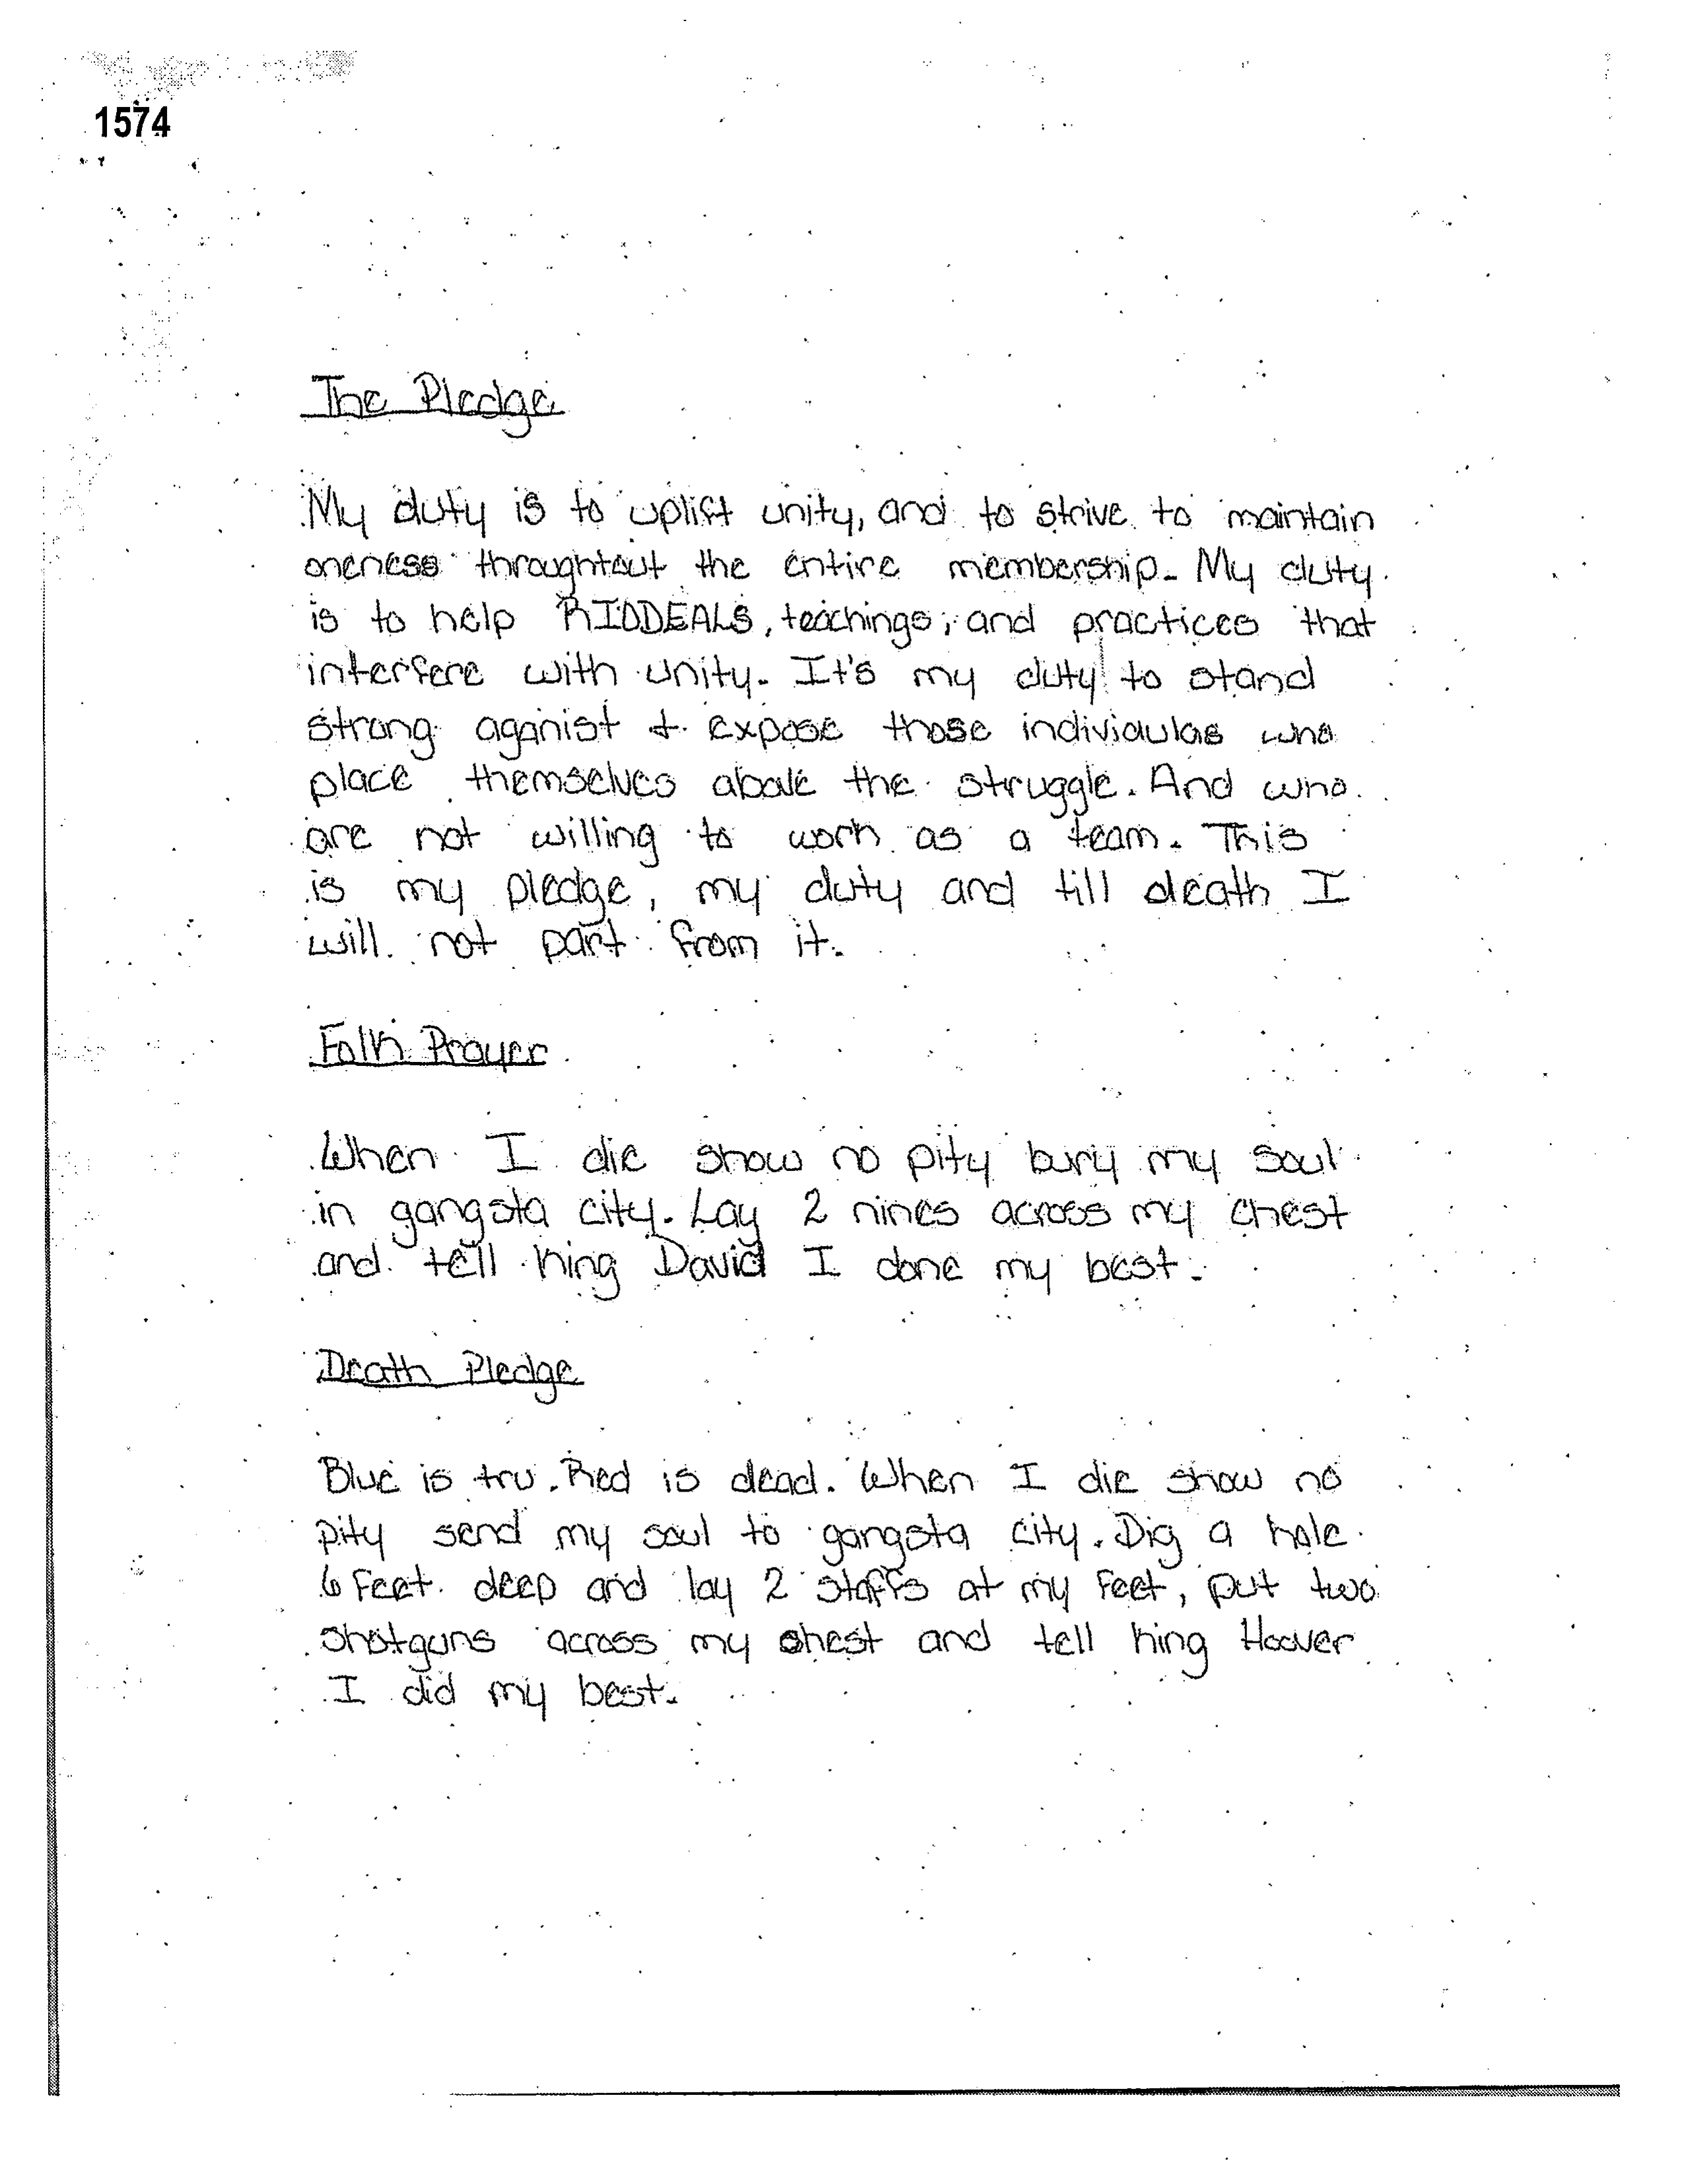 1574
The Pledge
My duty is to uplift unity, and to strive to maintain
oneness throughtout the entire membership. My duty
is to help RIDDEALS, teachings, and practices that
interfere with unity. It's my duty to stand
strong aganist & expose those individulas who
place themselves above the struggle. And who
are not willing to work as a team. This
is my pledge, my duty and till death I
will not part from it.
Folk Prayer
When I die show no pity bury my soul
in gangsta city. Lay 2 nines across my chest
and tell king David I done my best.
Death Pledge
Blue is tru. Red is dead. When I die show no
pity send my soul to gangsta city. Dig a hole
6 feet deep and lay 2 staffs at my feet, put two
shotguns across my chest and tell king Hoover
I did my best.